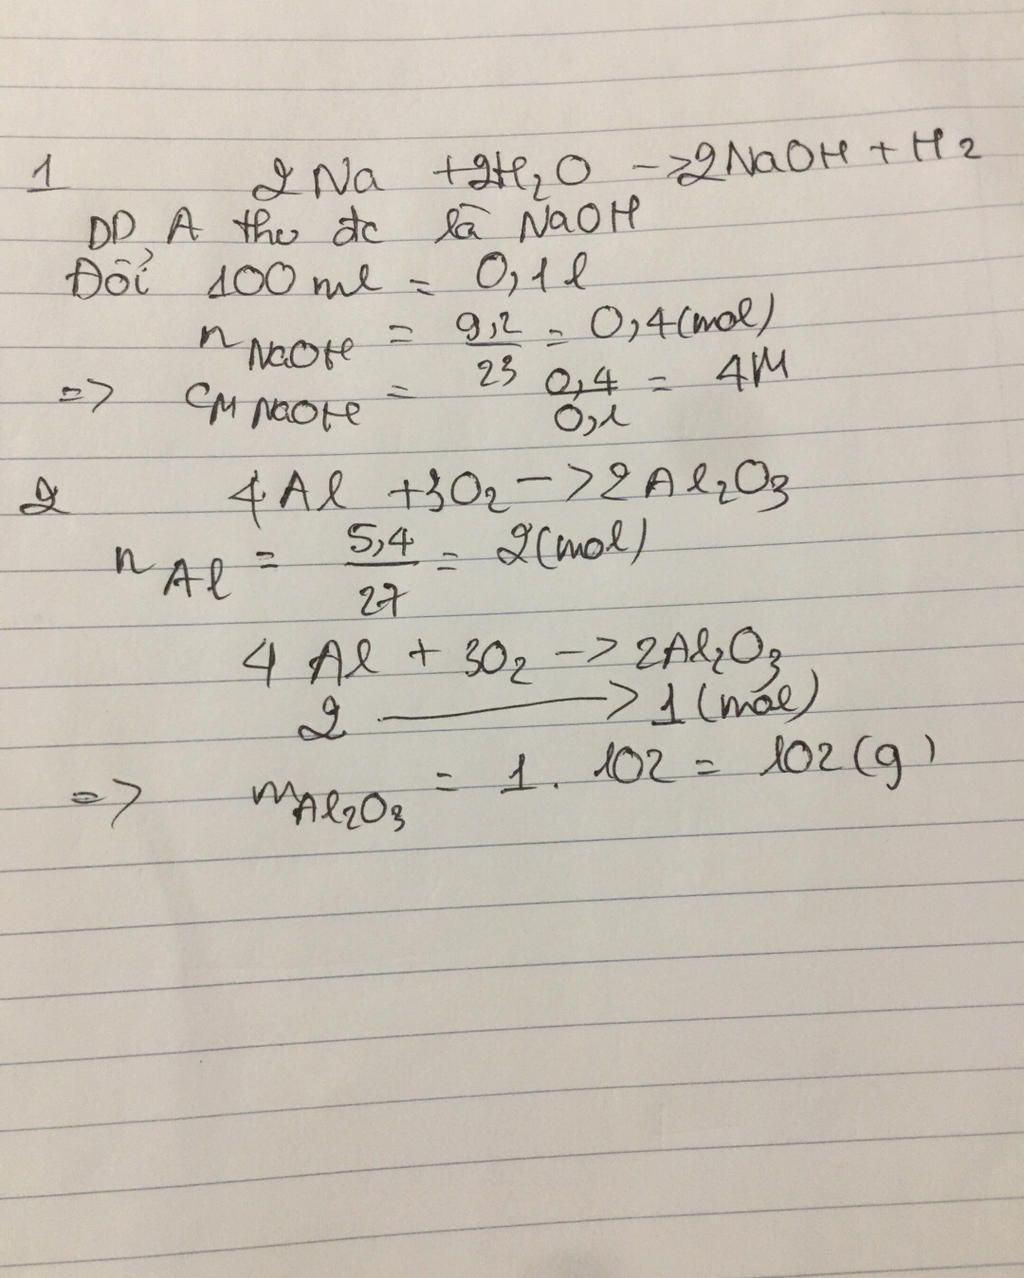 1 2Na + 2H₂O -> 2NaOH + H₂
DD A thu đc là NaOH
Đổi 100 ml = 0,1 l
n NaOH = 9,2/23 = 0,4 (mol)
=> CM NaOH = 0,4/0,1 = 4M
2 4Al + 3O₂ -> 2Al₂O₃
n Al = 5,4/27 = 2 (mol)
4Al + 3O₂ -> 2Al₂O₃
2 -> 1 (mol)
=> m Al₂O₃ = 1 . 102 = 102 (g)